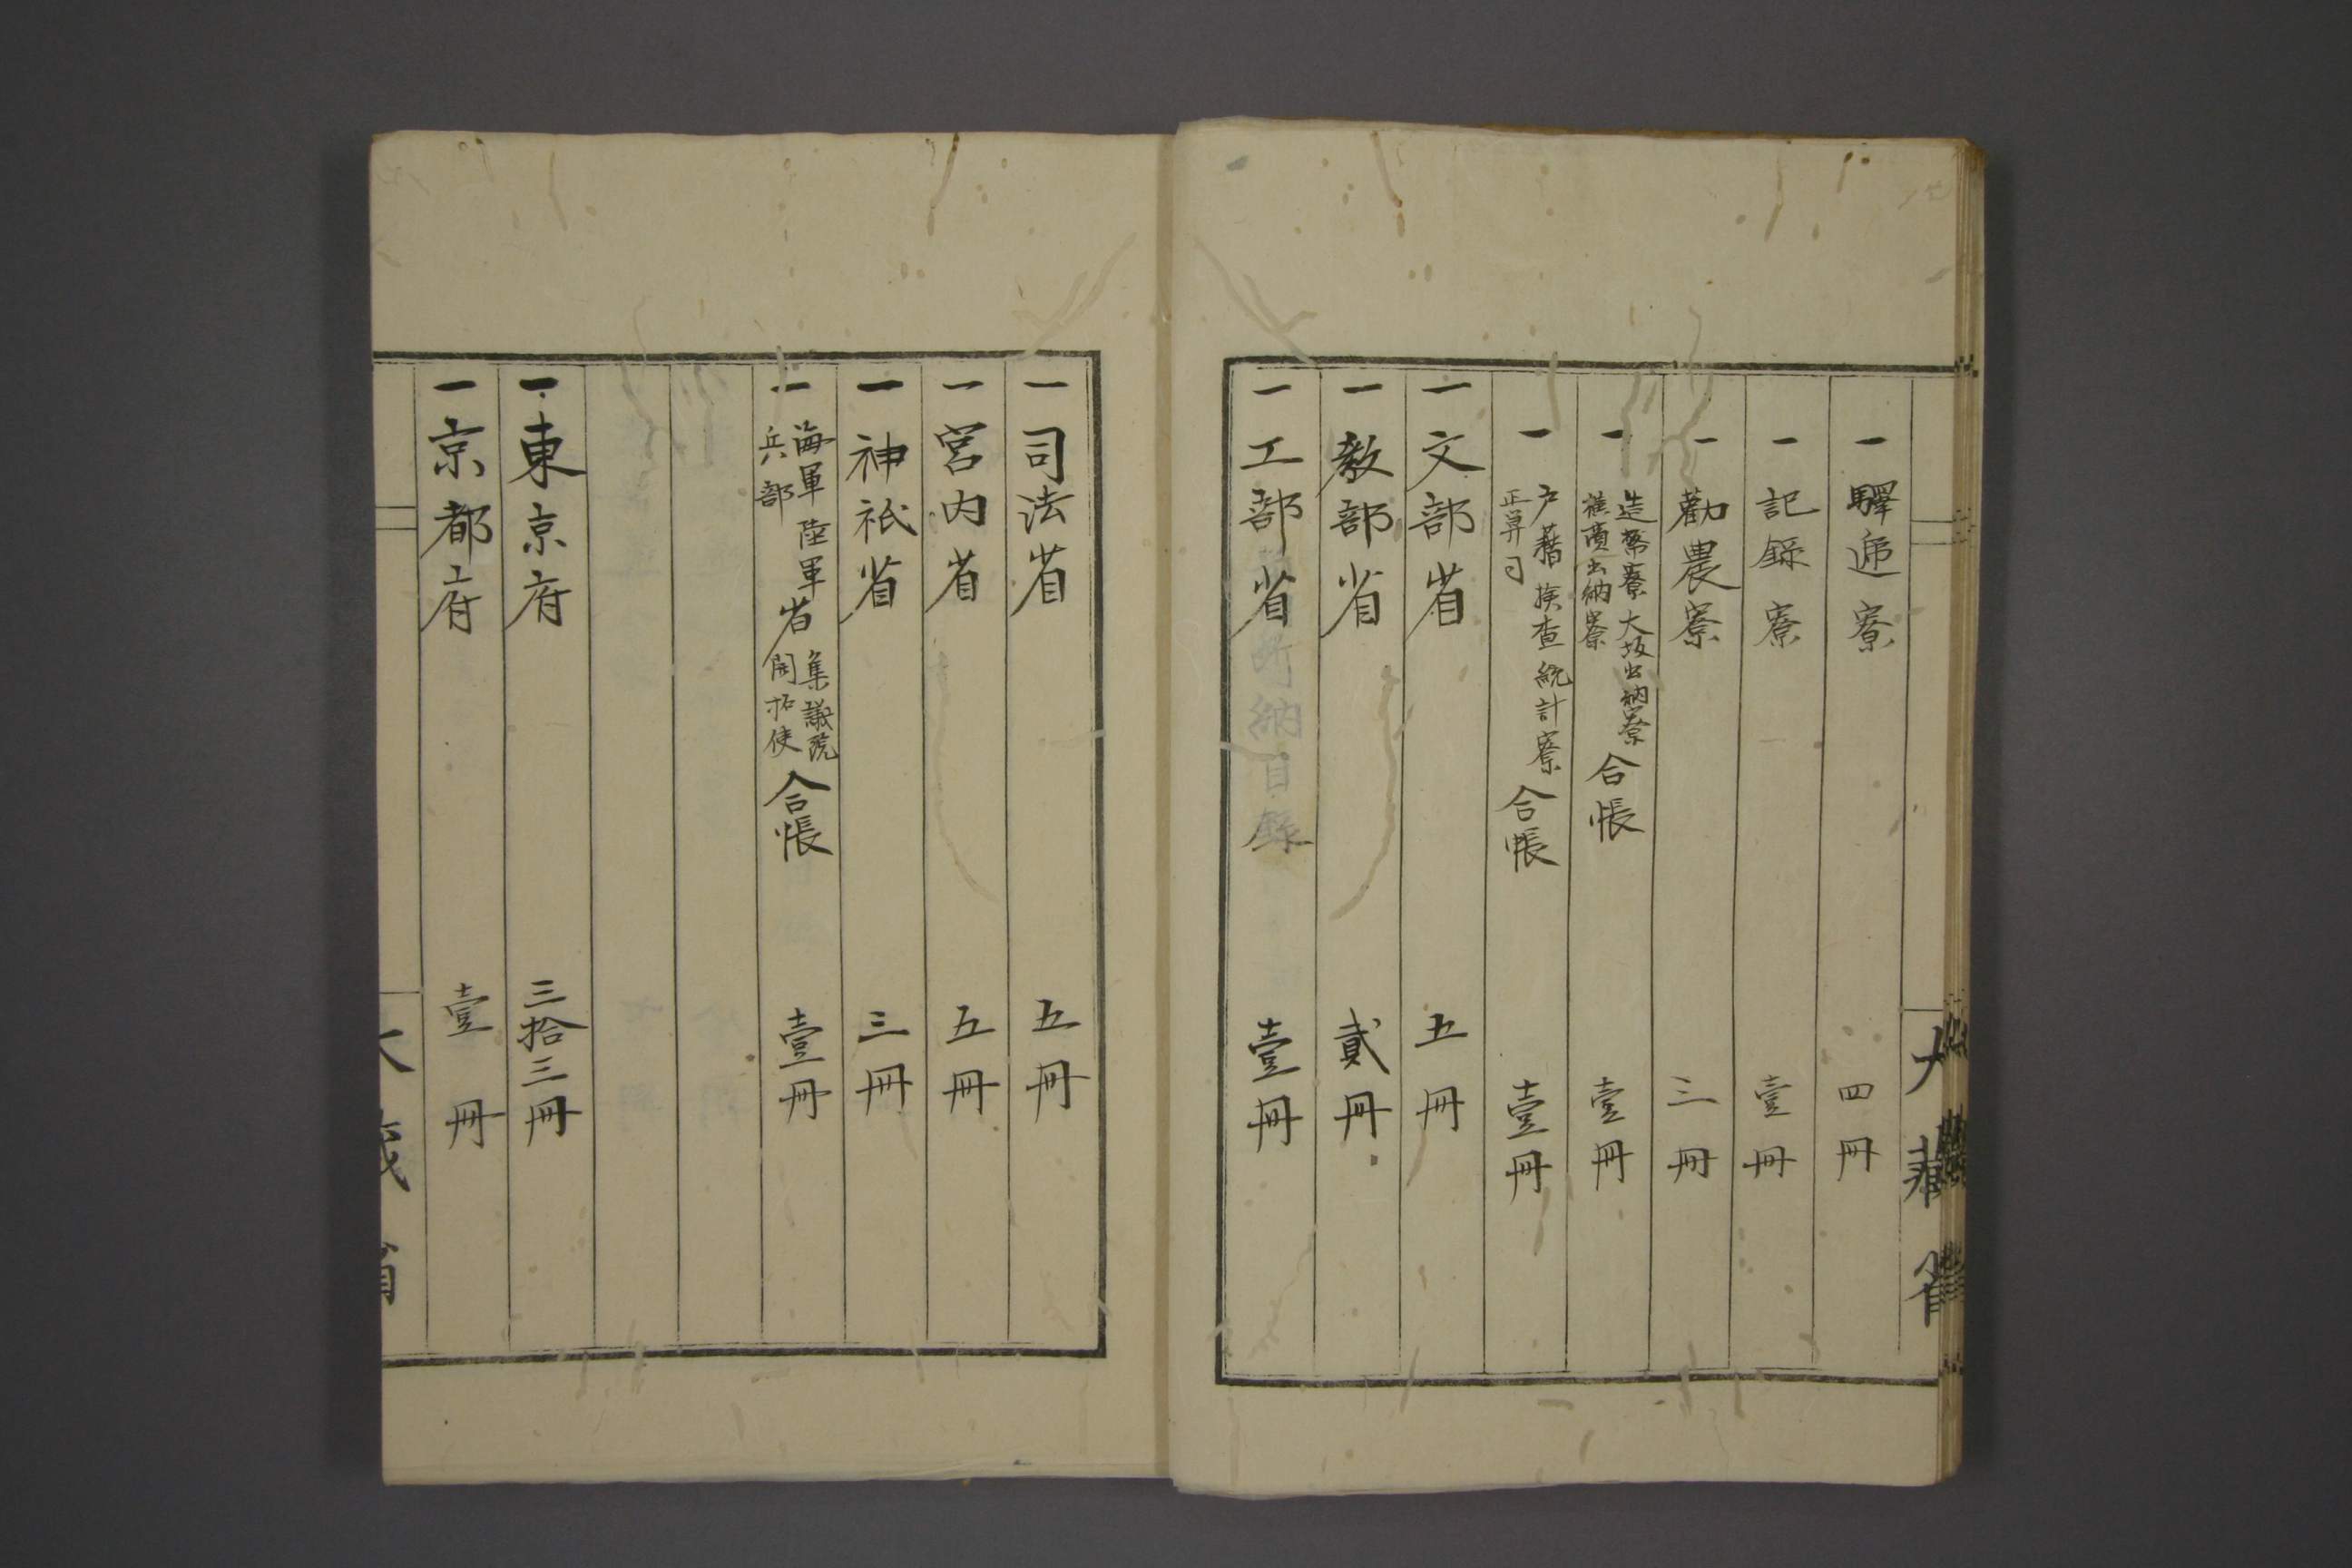 一驛逓寮 四冊
一記録寮 壹冊
一勸農寮 三冊
一造幣寮大坂出納寮
出納寮
合帳 壹冊
一戸籍検査統計寮
正算司
合帳 壹冊
一文部省 五冊
一教部省 貳冊
一工部省 壹冊
大藏省
一司法省 五冊
一宮内省 五冊
一神祇省 三冊
一海軍陸軍
兵部
省
集議院
開拓使
合帳 壹冊
一東京府 三拾三冊
一京都府 壹冊
大藏省